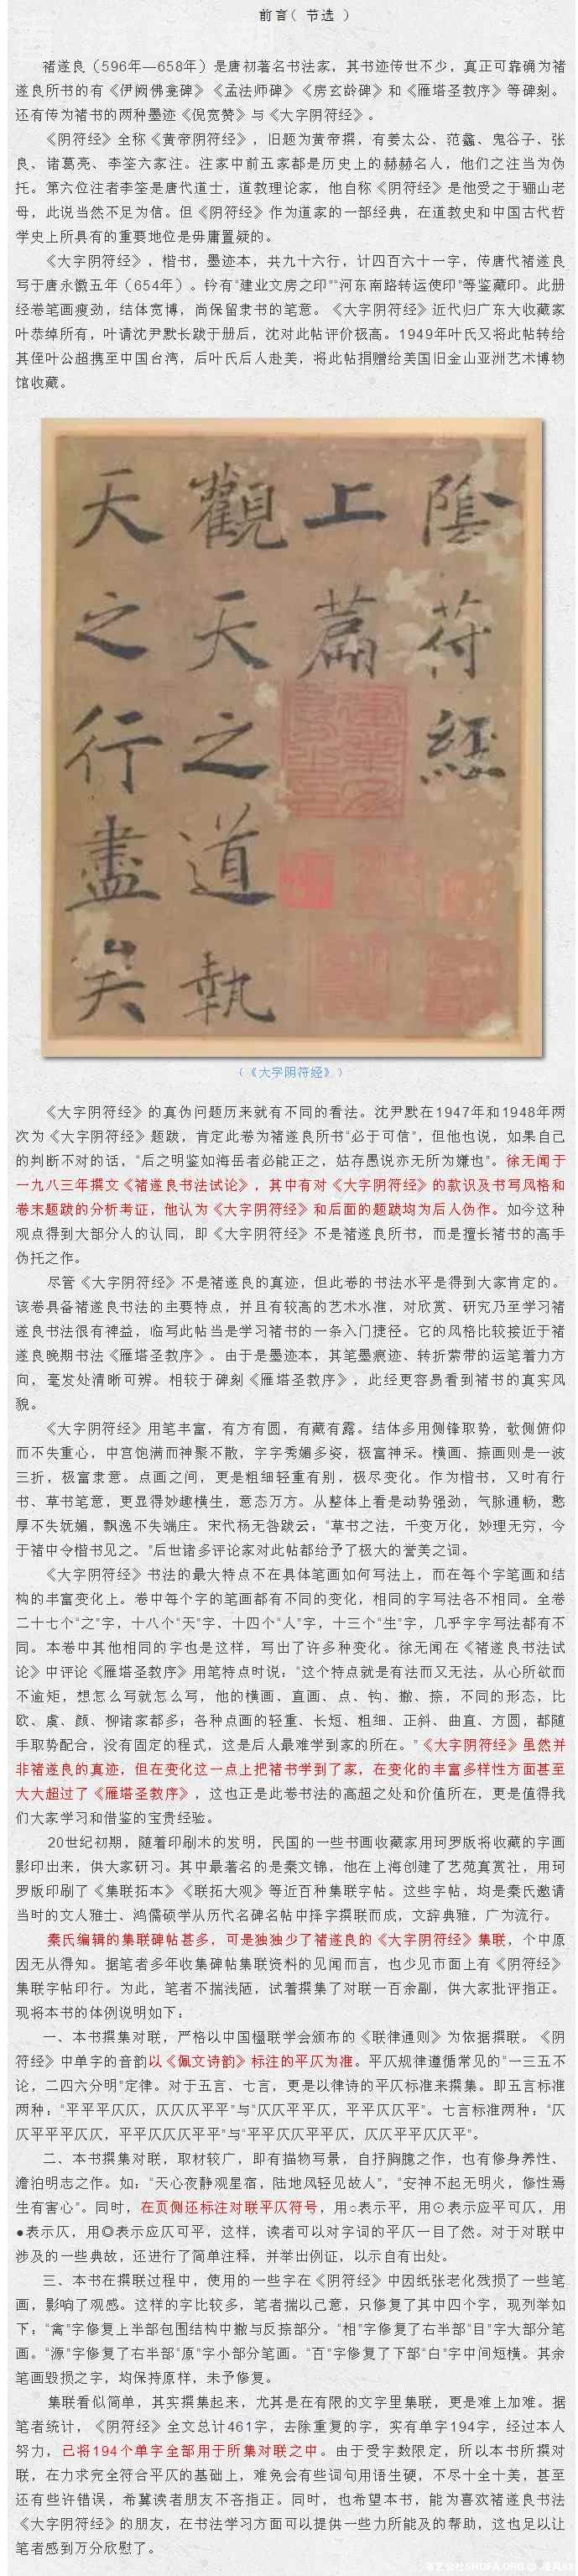 前言( 节选 )
褚遂良（596年—658年）是唐初著名书法家，其书迹传世不少，真正可靠确为褚
遂良所书的有《伊阙佛龛碑》《孟法师碑》《房玄龄碑》和《雁塔圣教序》等碑刻。
还有传为褚书的两种墨迹《倪宽赞》与《大字阴符经》。
《阴符经》全称《黄帝阴符经》，旧题为黄帝撰，有姜太公、范蠡、鬼谷子、张
良、诸葛亮、李筌六家注。注家中前五家都是历史上的赫赫名人，他们之注当为伪
托。第六位注者李筌是唐代道士，道教理论家，他自称《阴符经》是他受之于骊山老
母，此说当然不足为信。但《阴符经》作为道家的一部经典，在道教史和中国古代哲
学史上所具有的重要地位是毋庸置疑的。
《大字阴符经》，楷书，墨迹本，共九十六行，计四百六十一字，传唐代褚遂良
写于唐永徽五年（654年）。钤有“建业文房之印”“河东南路转运使印”等鉴藏印。此册
经卷笔画瘦劲，结体宽博，尚保留隶书的笔意。《大字阴符经》近代归广东大收藏家
叶恭绰所有，叶请沈尹默长跋于册后，沈对此帖评价极高。1949年叶氏又将此帖转给
其侄叶公超携至中国台湾，后叶氏后人赴美，将此帖捐赠给美国旧金山亚洲艺术博物
馆收藏。
陰符經
上篇
觀天之道執
天之行盡矣
（《大字阴符经》）
《大字阴符经》的真伪问题历来就有不同的看法。沈尹默在1947年和1948年两
次为《大字阴符经》题跋，肯定此卷为褚遂良所书“必于可信”，但他也说，如果自己
的判断不对的话，“后之明鉴如海岳者必能正之，姑存愚说亦无所为嫌也”。徐无闻于
一九八三年撰文《褚遂良书法试论》，其中有对《大字阴符经》的款识及书写风格和
卷末题跋的分析考证，他认为《大字阴符经》和后面的题跋均为后人伪作。如今这种
观点得到大部分人的认同，即《大字阴符经》不是褚遂良所书，而是擅长褚书的高手
伪托之作。
尽管《大字阴符经》不是褚遂良的真迹，但此卷的书法水平是得到大家肯定的。
该卷具备褚遂良书法的主要特点，并且有较高的艺术水准，对欣赏、研究乃至学习褚
遂良书法很有裨益，临写此帖当是学习褚书的一条入门捷径。它的风格比较接近于褚
遂良晚期书法《雁塔圣教序》。由于是墨迹本，其笔墨痕迹、转折萦带的运笔着力方
向，毫发处清晰可辨。相较于碑刻《雁塔圣教序》，此经更容易看到褚书的真实风
貌。
《大字阴符经》用笔丰富，有方有圆，有藏有露。结体多用侧锋取势，欹侧俯仰
而不失重心，中宫饱满而神聚不散，字字秀媚多姿，极富神采。横画、捺画则是一波
三折，极富隶意。点画之间，更是粗细轻重有别，极尽变化。作为楷书，又时有行
书、草书笔意，更显得妙趣横生，意态万方。从整体上看是动势强劲，气脉通畅，憨
厚不失妩媚，飘逸不失端庄。宋代杨无咎跋云：“草书之法，千变万化，妙理无穷，今
于褚中令楷书见之。”后世诸多评论家对此帖都给予了极大的誉美之词。
《大字阴符经》书法的最大特点不在具体笔画如何写法上，而在每个字笔画和结
构的丰富变化上。卷中每个字的笔画都有不同的变化，相同的字写法各不相同。全卷
二十七个“之”字，十八个“天”字、十四个“人”字，十三个“生”字，几乎字字写法都有不
同。本卷中其他相同的字也是这样，写出了许多种变化。徐无闻在《褚遂良书法试
论》中评论《雁塔圣教序》用笔特点时说：“这个特点就是有法而又无法，从心所欲而
不逾矩，想怎么写就怎么写，他的横画、直画、点、钩、撇、捺，不同的形态，比
欧、虞、颜、柳诸家都多；各种点画的轻重、长短、粗细、正斜、曲直、方圆，都随
手取势配合，没有固定的程式，这是后人最难学到家的所在。”《大字阴符经》虽然并
非褚遂良的真迹，但在变化这一点上把褚书学到了家，在变化的丰富多样性方面甚至
大大超过了《雁塔圣教序》，这也正是此卷书法的高超之处和价值所在，更是值得我
们大家学习和借鉴的宝贵经验。
20世纪初期，随着印刷术的发明，民国的一些书画收藏家用珂罗版将收藏的字画
影印出来，供大家研习。其中最著名的是秦文锦，他在上海创建了艺苑真赏社，用珂
罗版印刷了《集联拓本》《联拓大观》等近百种集联字帖。这些字帖，均是秦氏邀请
当时的文人雅士、鸿儒硕学从历代名碑名帖中择字撰联而成，文辞典雅，广为流行。
秦氏编辑的集联碑帖甚多，可是独独少了褚遂良的《大字阴符经》集联，个中原
因无从得知。据笔者多年收集碑帖集联资料的见闻而言，也少见市面上有《阴符经》
集联字帖印行。为此，笔者不揣浅陋，试着撰集了对联一百余副，供大家批评指正。
现将本书的体例说明如下：
一、本书撰集对联，严格以中国楹联学会颁布的《联律通则》为依据撰联。《阴
符经》中单字的音韵以《佩文诗韵》标注的平仄为准。平仄规律遵循常见的“一三五不
论，二四六分明”定律。对于五言、七言，更是以律诗的平仄标准来撰集。即五言标准
两种：“平平平仄仄，仄仄仄平平”与“仄仄平平仄，平平仄仄平”。七言标准两种：“仄
仄平平平仄仄，平平仄仄仄平平”与“平平仄仄平平仄，仄仄平平仄仄平”。
二、本书撰集对联，取材较广，即有描物写景，自抒胸臆之作，也有修身养性、
澹泊明志之作。如：“天心夜静观星宿，陆地风轻见故人”，“安神不起无明火，修性焉
生有害心”。同时，在页侧还标注对联平仄符号，用○表示平，用⊙表示应平可仄，用
●表示仄，用◎表示应仄可平，这样，读者可以对字词的平仄一目了然。对于对联中
涉及的一些典故，还进行了简单注释，并举出例证，以示自有出处。
三、本书在撰联过程中，使用的一些字在《阴符经》中因纸张老化残损了一些笔
画，影响了观感。这样的字比较多，笔者揣以己意，只修复了其中四个字，现列举如
下：“禽”字修复上半部包围结构中撇与反捺部分。“相”字修复了右半部“目”字大部分笔
画。“源”字修复了右半部“原”字小部分笔画。“百”字修复了下部“白”字中间短横。其余
笔画毁损之字，均保持原样，未予修复。
集联看似简单，其实撰集起来，尤其是在有限的文字里集联，更是难上加难。据
笔者统计，《阴符经》全文总计461字，去除重复的字，实有单字194字，经过本人
努力，已将194个单字全部用于所集对联之中。由于受字数限定，所以本书所撰对
联，在力求完全符合平仄的基础上，难免会有些词句用语生硬，不尽十全十美，甚至
还有些许错误，希冀读者朋友不吝指正。同时，也希望本书，能为喜欢褚遂良书法
《大字阴符经》的朋友，在书法学习方面可以提供一些力所能及的帮助，这也足以让
笔者感到万分欣慰了。